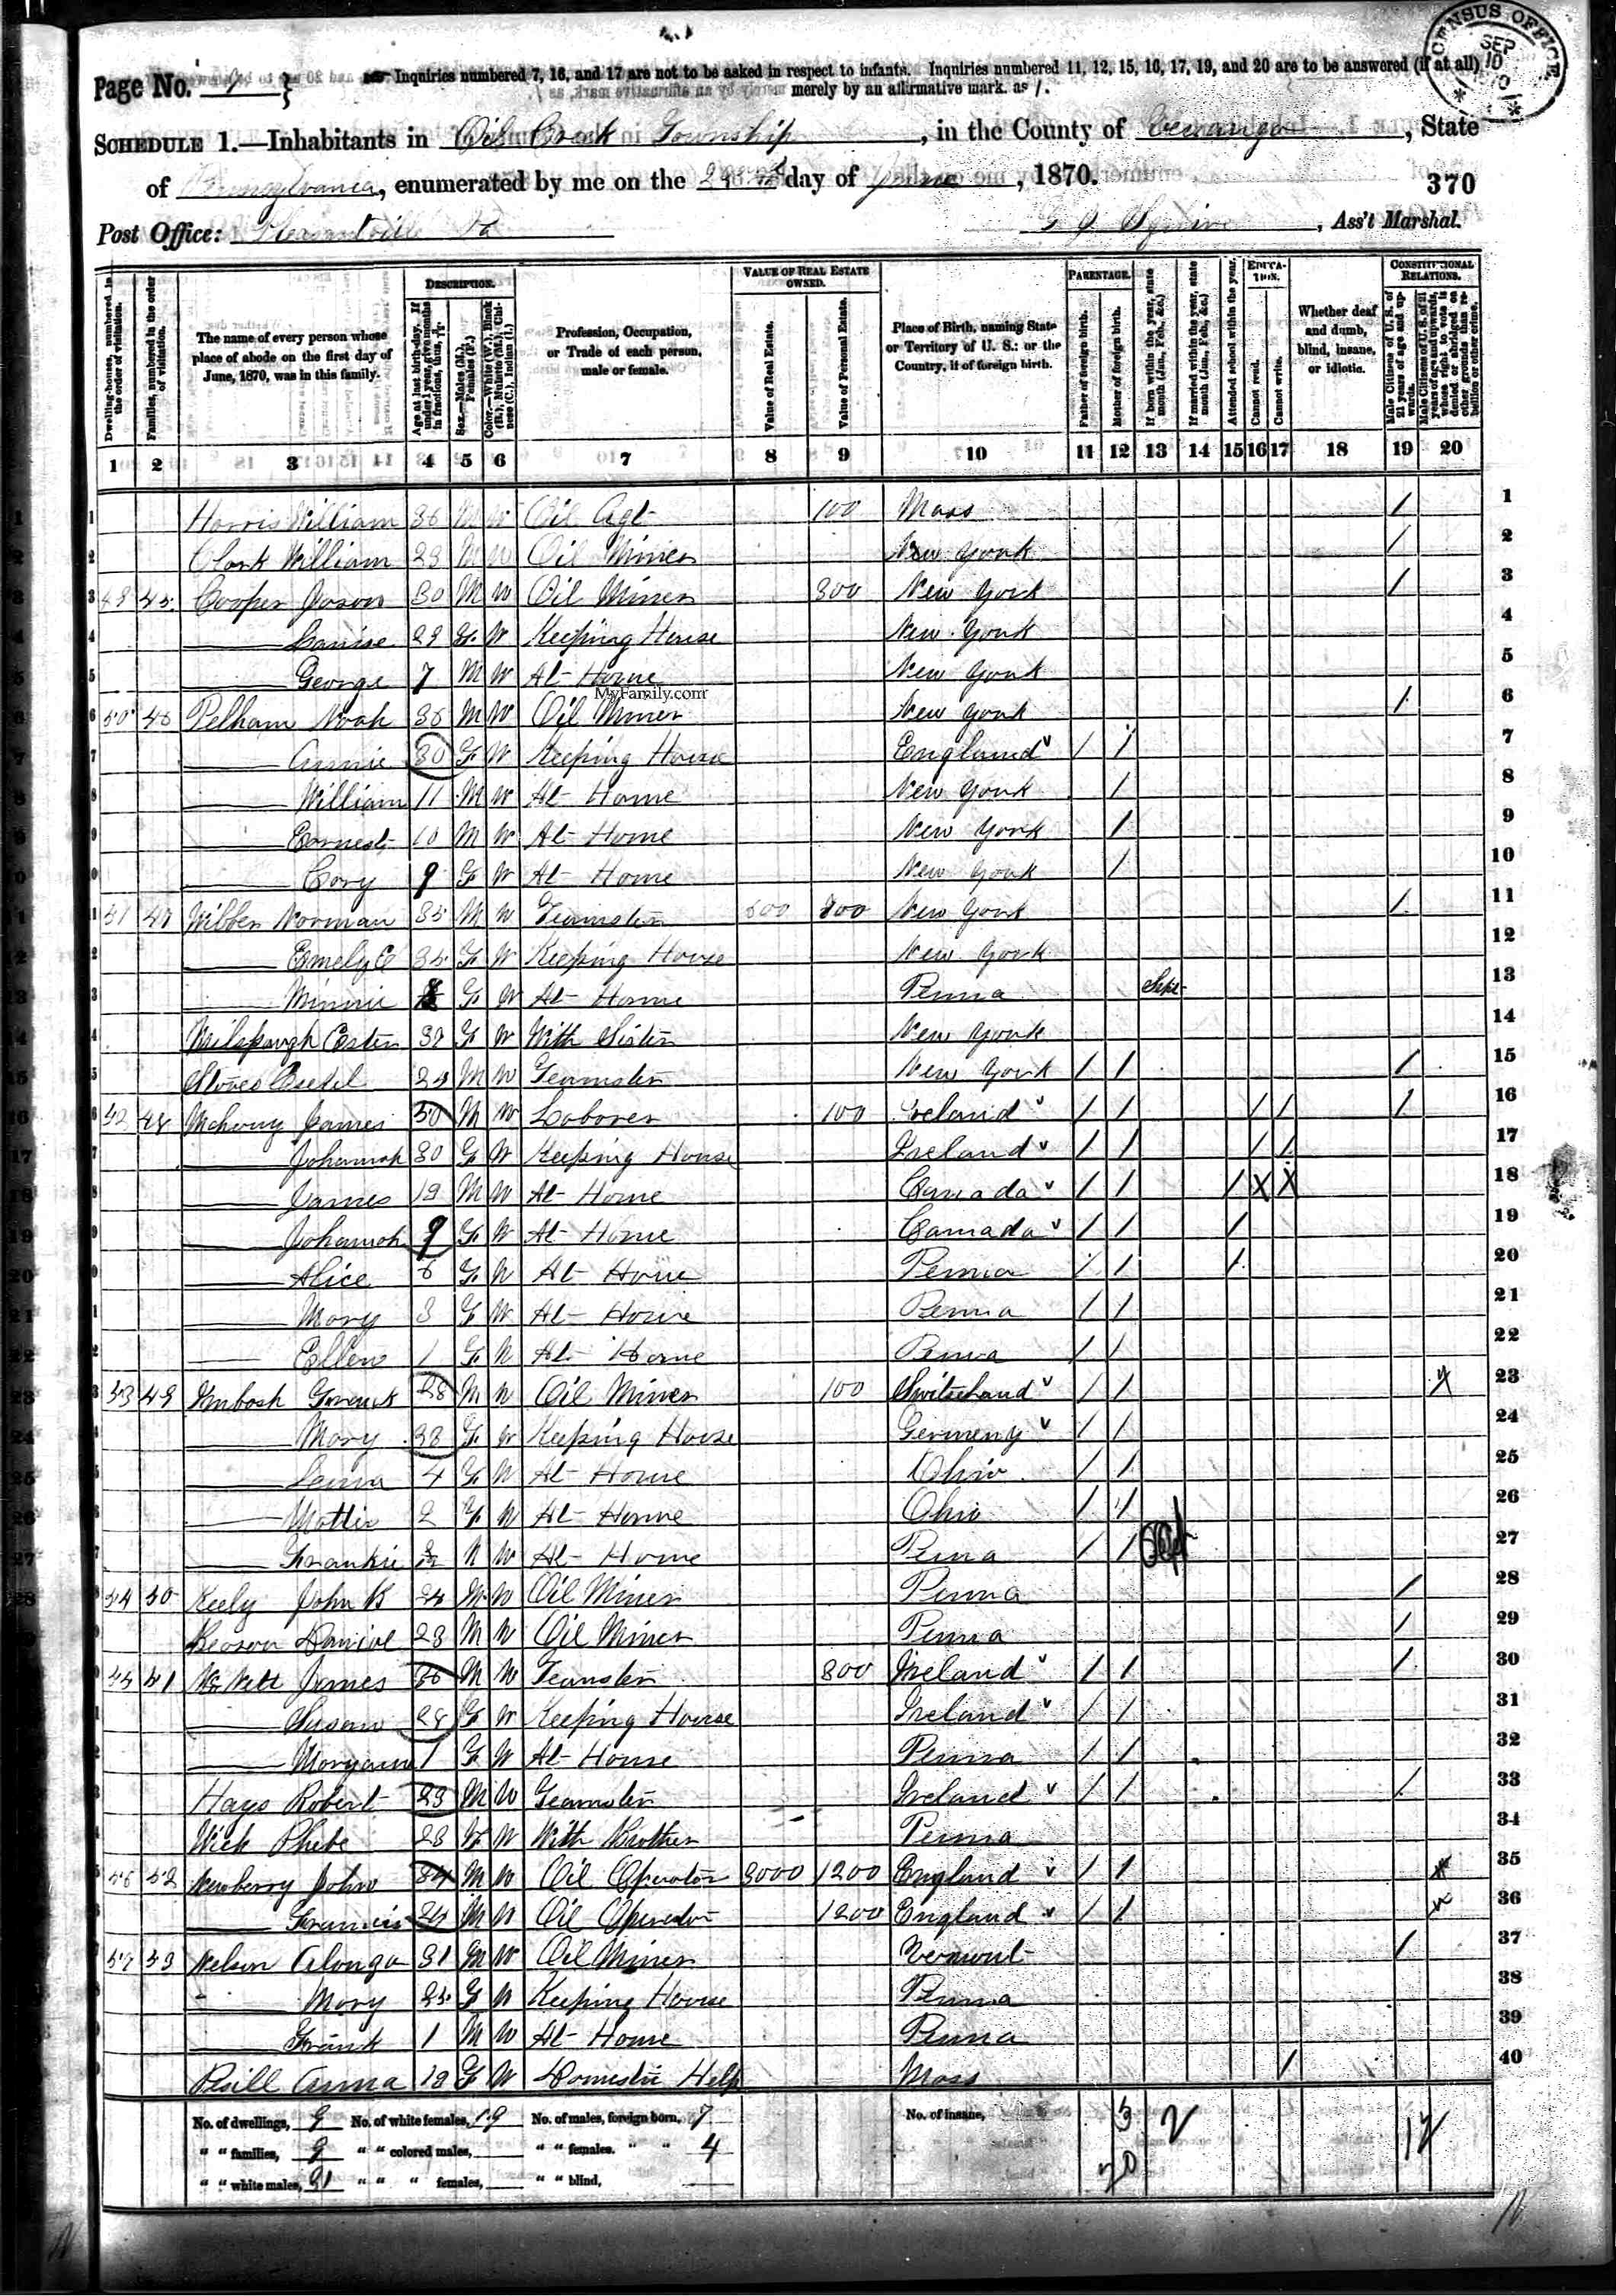 CENSUS OFFICE SEP 10
Page No. 7 } Inquiries numbered 7, 16, and 17 are not to be asked in respect to infants. Inquiries numbered 11, 12, 15, 16, 17, 19, and 20 are to be answered (if at all)
merely by an affirmative mark, as /.
SCHEDULE 1.—Inhabitants in Oil Creek Township, in the County of Venango, State
of Pennsylvania, enumerated by me on the day of June, 1870.
370
Post Office: Pleasantville Pa , Ass't Marshal.
Dwelling-houses, numbered in the order of visitation.
Families, numbered in the order of visitation.
The name of every person whose place of abode on the first day of June, 1870, was in this family.
DESCRIPTION.
Age at last birth-day. If under 1 year, give months in fractions, thus, 3/12.
Sex.—Males (M.), Females (F.)
Color.—White (W.), Black (B.), Mulatto (M.), Chinese (C.), Indian (I.)
Profession, Occupation, or Trade of each person, male or female.
VALUE OF REAL ESTATE OWNED.
Value of Real Estate.
Value of Personal Estate.
Place of Birth, naming State or Territory of U. S.; or the Country, if of foreign birth.
PARENTAGE.
Father of foreign birth.
Mother of foreign birth.
If born within the year, state month (Jan., Feb., &c.)
If married within the year, state month (Jan., Feb., &c.)
Attended school within the year.
EDUCATION.
Cannot read.
Cannot write.
Whether deaf and dumb, blind, insane, or idiotic.
CONSTITUTIONAL RELATIONS.
Male Citizens of U. S. of 21 years of age and upwards.
Male Citizens of U. S. of 21 years of age and upwards, whose right to vote is denied or abridged on other grounds than rebellion or other crime.
1 2 3 4 5 6 7 8 9 10 11 12 13 14 15 16 17 18 19 20
1 Harris William 36 M W Oil Agt 100 Mass / 1
2 Clark William M W Oil Miner New York / 2
3 45 Cooper Jason 30 M W Oil Miner 300 New York / 3
4 Louise F W Keeping House New York 4
5 George 7 M W At Home New York 5
MyFamily.com
6 50 46 Pelham Noah 36 M W Oil Miner New York / 6
7 Annie 30 F W Keeping House England / / 7
8 William 11 M W At Home New York / 8
9 Earnest 10 M W At Home New York / 9
10 Cory 9 F W At Home New York / 10
11 51 47 Wibber Norman 35 M W Teamster 800 New York / 11
12 Emely E 35 F W Keeping House New York 12
13 Minnie F W At Home Penna Sept 13
14 Milspaugh Ester F W With Sister New York 14
15 M W Teamster New York / / / 15
16 52 48 Mahony James 50 M W Laborer 100 Ireland / / / / / 16
17 Johannah 30 F W Keeping House Ireland / / / / 17
18 James 19 M W At Home Canada / / / X X 18
19 Johannah 9 F W At Home Canada / / / 19
20 Alice 6 F W At Home Penna / / / 20
21 Mary 3 F W At Home Penna / / 21
22 Ellen 1 F W At Home Penna / / 22
23 53 49 M W Oil Miner 100 Switzerland / / X 23
24 Mary 38 F W Keeping House Germeny / / 24
25 4 F W At Home Ohio / / 25
26 Mattie 2 F W At Home Ohio / / 26
27 Frankie W At Home Penna / / Sept 27
28 54 50 Keely John B M W Oil Miner Penna / 28
29 Daniel 28 M W Oil Miner Penna / 29
30 55 51 James 36 M W Teamster 800 Ireland / / / 30
31 Susan 28 F W Keeping House Ireland / / 31
32 Maryann 1 F W At Home Penna / / 32
33 Hays Robert 23 M W Teamster Ireland / / / 33
34 Wick Phebe 28 F W With Brother Penna 34
35 56 52 Newberry John 34 M W Oil Operator 3000 1200 England / / X 35
36 Francis M W Oil Operator 1200 England / / X 36
37 57 53 Nelson Alonzo 31 M W Oil Miner Vermont / 37
38 Mary 25 F W Keeping House Penna 38
39 Frank 1 M W At Home Penna 39
40 Anna 18 F W Domestic Help Mass / 40
No. of dwellings, 9 No. of white females, 19 No. of males, foreign born, 7 No. of insane, 3 2
" " families, 9 " " colored males, " " females, " " 4 20 12
" " white males, 21 " " " females, " " blind,